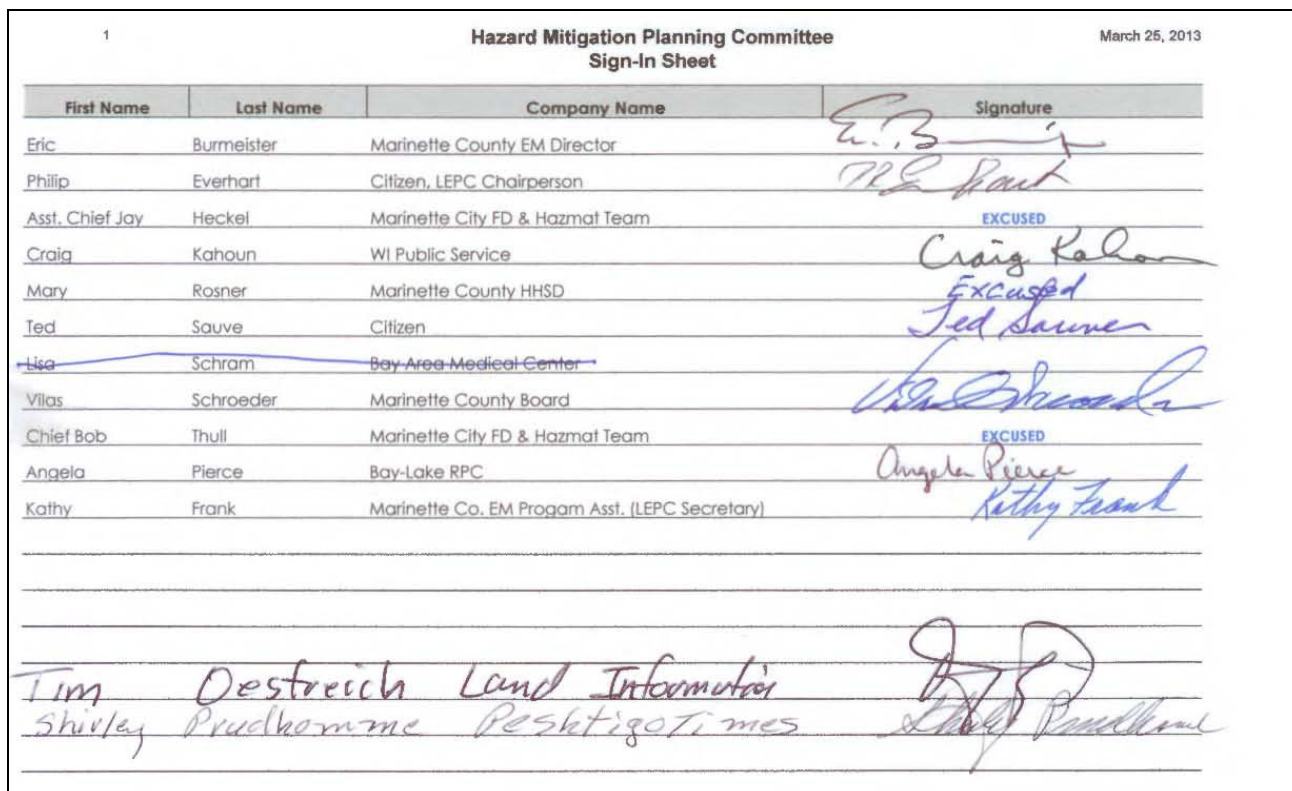 1 Hazard Mitigation Planning Committee March 25, 2013
Sign-In Sheet
First Name Last Name Company Name Signature
Eric Burmeister Marinette County EM Director
Philip Everhart Citizen, LEPC Chairperson
Asst. Chief Jay Heckel Marinette City FD & Hazmat Team EXCUSED
Craig Kahoun WI Public Service Craig Kahoun
Mary Rosner Marinette County HHSD Excused
Ted Sauve Citizen Ted Sauve
Lisa Schram Bay Area Medical Center
Vilas Schroeder Marinette County Board Vilas Schroeder
Chief Bob Thull Marinette City FD & Hazmat Team EXCUSED
Angela Pierce Bay-Lake RPC Angela Pierce
Kathy Frank Marinette Co. EM Progam Asst. (LEPC Secretary) Kathy Frank
Tim Oestreich Land Information
Shirley Prudhomme Peshtigo Times Shirley Prudhomme